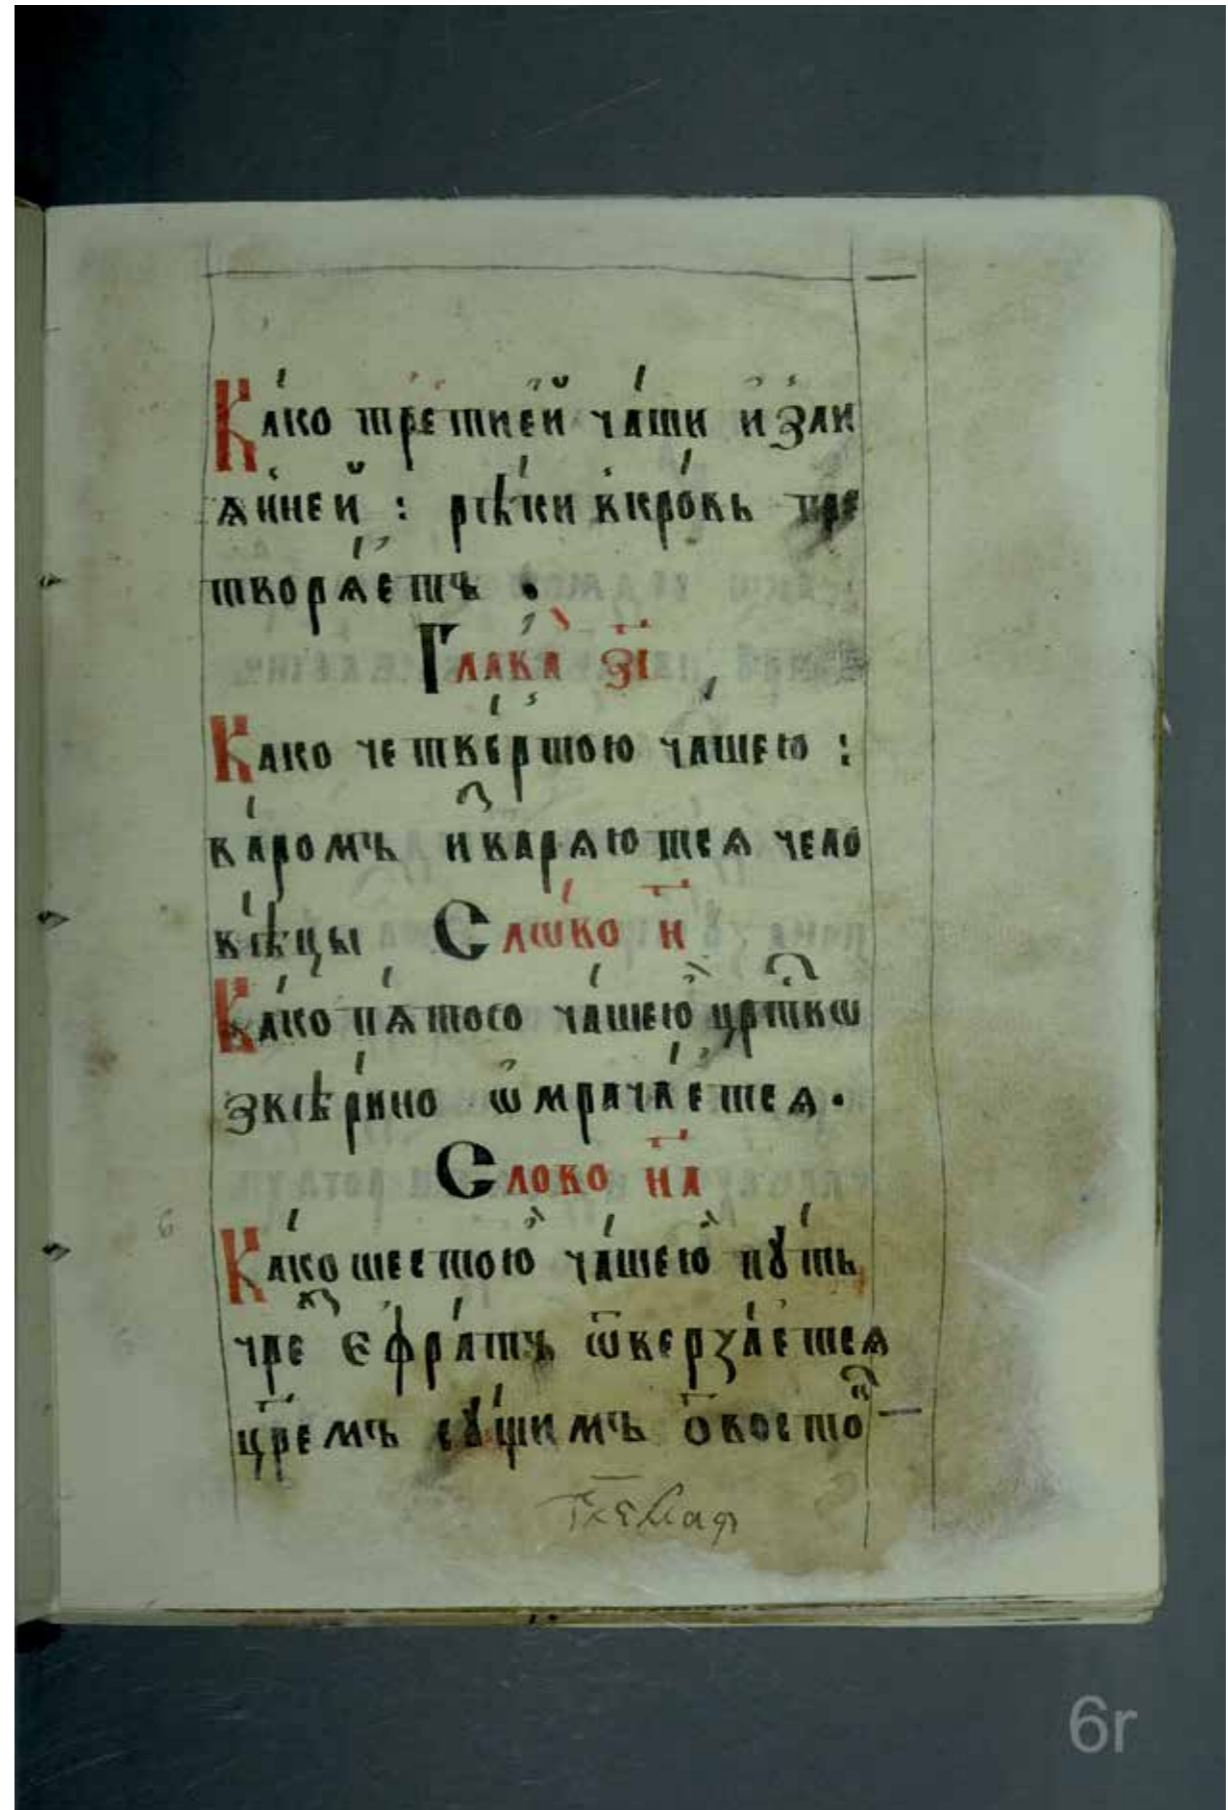 Ка́ко тре́тией ча́ши и҆зли
ѧ́нней : рѣ́ки в кро́вь пре
творѧ́етъ .
Глава̀ з҃і
Ка́ко четве́ртою ча́шею :
ва́ромъ и҆ варѧютсѧ чело
вѣ́цы Слѡ́во н҃
Ка́ко пѧ́тою ча́шею црⷭ҇твѡ
ѕвѣ́рино ѡ҆мрача́етсѧ .
Слово н҃а
Ка́ко шестою ча́шею пꙋ́ть
чре Єфра́тъ ѿверза́етсѧ
цр҃емъ сꙋ́щимъ ѿвосто
6
6r